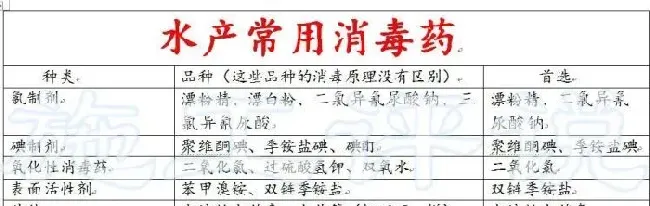 水产常用消毒药
种类 品种（这些品种的消毒原理没有区别） 首选
氯制剂。 漂粉精、漂白粉、二氯异氰尿酸钠、三 漂粉精、二氯异氰
氯异氰尿酸。 尿酸钠。
碘制剂。 聚维酮碘、季铵盐碘、碘酊。 聚维酮碘、季铵盐碘。
氧化性消毒药。 二氧化氯、过硫酸氢钾、双氧水。 二氧化氯。
表面活性剂。 苯甲溴铵、双链季铵盐。 双链季铵盐。